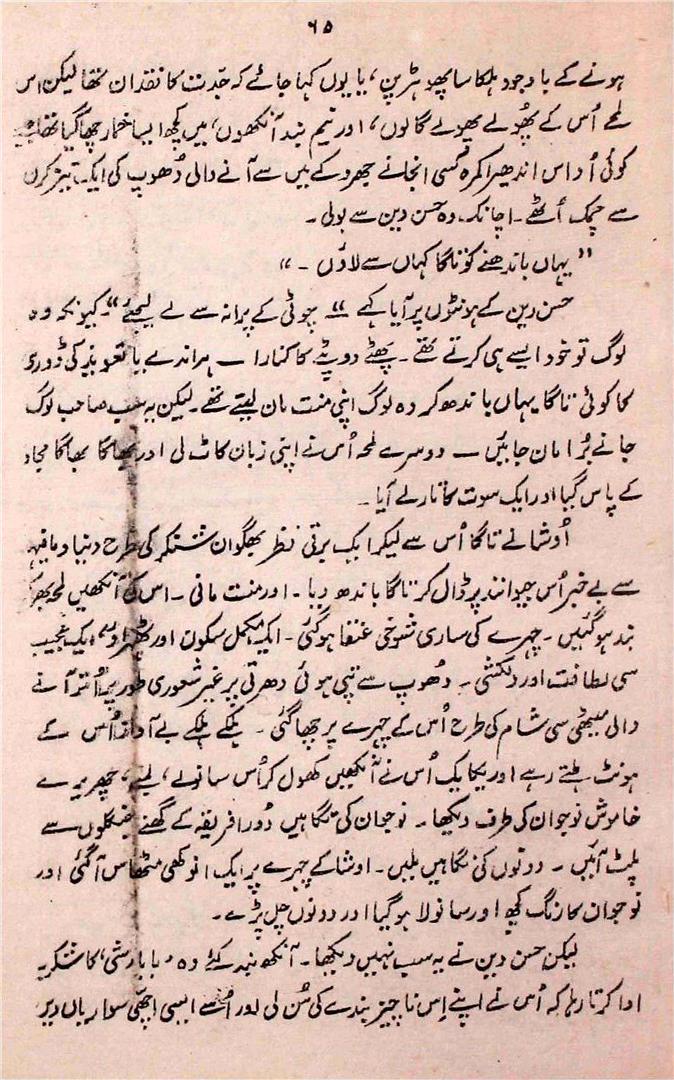 ۶۵
ہونے کے باوجود ہلکا سا پھوہڑ پن، یا یوں کہا جائے کہ جدت کا فقدان تھا لیکن اس
لمحے اُس کے پھُولے پھولے گالوں، اور نیم بند آنکھوں، میں کچھ ایسا خمار چھا گیا تھا جیسے
کوئی اُداس اندھیرا کمرہ کسی انجانے جھروکے میں سے آنے والی دُھوپ کی ایک تیز کرن
سے چمک اُٹھے۔ اچانک۔ وہ حسن دین سے بولی۔
"یہاں باندھنے کو تاگا کہاں سے لاؤں۔"
حسن دین کے ہونٹوں پر آیا کہے "چوٹی کے پرانہ سے لے لیجئے" کیونکہ وہ
لوگ تو خود ایسے ہی کرتے تھے۔ پھٹے دوپٹے کا کنارا ـ پراندے یا تعویذ کی ڈوری
کا کوئی تاگا یہاں باندھ کر وہ لوگ اپنی منت مان لیتے تھے۔ لیکن یہ سب صاحب لوگ
جانے بُرا مان جائیں ـ دوسرے لمحہ اُس نے اپنی زبان کاٹ لی اور بھاگا بھاگا مجاور
کے پاس گیا اور ایک سوت کا تار لے آیا۔
اُوشا نے تاگا اُس سے لیکر ایک برتی نظر بھگوان شنکر کی طرح دنیا و مافیہا
سے بے خبر اُس جیوانند پر ڈال کر تاگا باندھ دیا۔ اور منت مانی۔ اس کی آنکھیں لمحہ بھر کو
بند ہو گئیں۔ چہرے کی ساری شوخی عنقا ہو گئی۔ ایک مکمل سکون اور ٹھہراؤ، ایک عجیب
سی لطافت اور دلکشی۔ دُھوپ سے تپی ہوئی دھرتی پر غیر شعوری طور پر اُتر آنے
والی میٹھی سی شام کی طرح اُس کے چہرے پر چھا گئی۔ ہلکے ہلکے بے آواز اُس کے
ہونٹ ہلتے رہے اور یکایک اُس نے آنکھیں کھول کر اُس سانولے، لمبے، چھریرے
خاموش نوجوان کی طرف دیکھا۔ نوجوان کی نگاہیں دُور افریقہ کے گھنے جنگلوں سے
پلٹ آئیں۔ دونوں کی نگاہیں ملیں۔ اوشا کے چہرے پر ایک انوکھی مٹھاس آ گئی اور
نوجوان کا رنگ کچھ اور سانولا ہو گیا اور دونوں چل پڑے۔
لیکن حسن دین نے یہ سب نہیں دیکھا۔ آنکھ بند کئے وہ، بابا رشی، کا شکریہ
ادا کرتا رہا کہ اُس نے اپنے اِس ناچیز بندے کی سُن لی اور اُسے ایسی اچھی سواریاں دیں